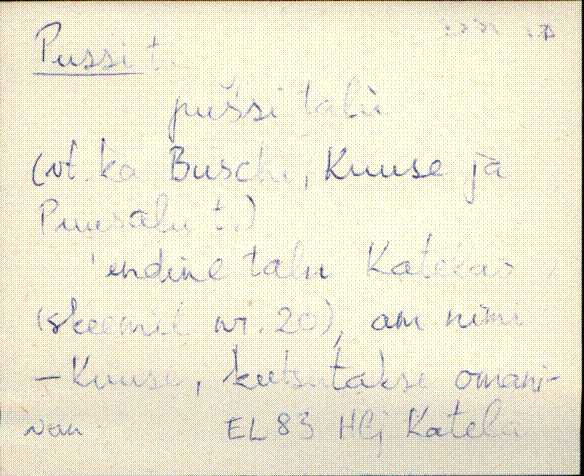 Pussi t.
pušsi talu
(vt. ka Buschi, Kuuse ja
Puusalu t.)
'endine talu Katekas
(skeemil nr. 20), am. nimi
– Kuuse, kutsutakse omani-
EL 83 Hlj